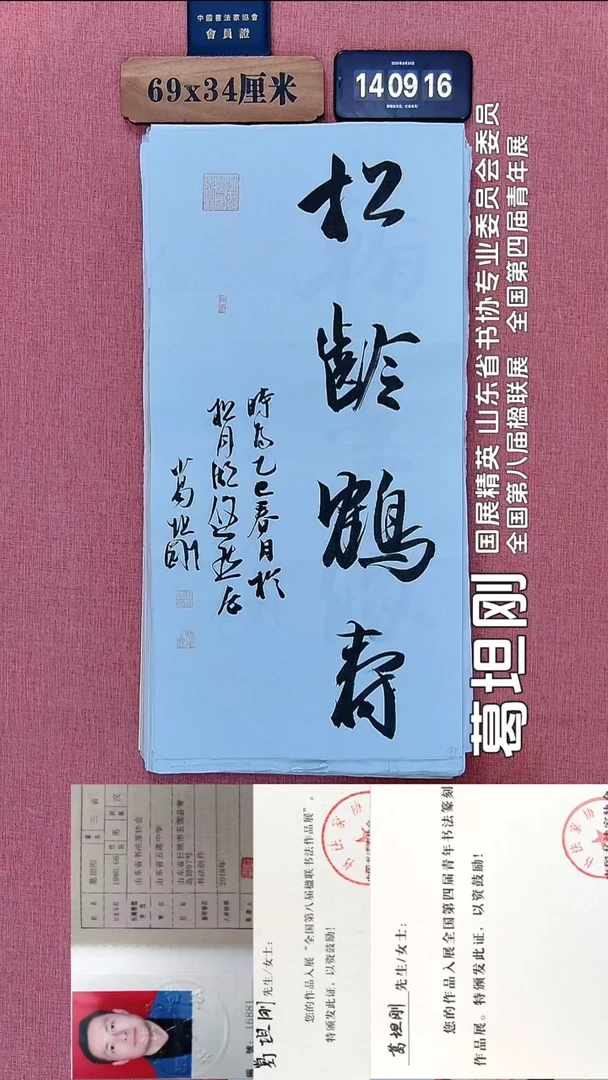 中國書法家協會
會員證
69x34厘米
14 09 16
松齡鶴壽
時為乙巳春日於
松月湖悠然居
葛坦剛
国展精英 山东省书协专业委员会委员
全国第八届楹联展 全国第四届青年展
葛坦刚
葛坦刚
1980.06
男
汉
山东省书法家协会
山东省五莲中学
书法创作
2018年
16881
葛坦刚 先生/女士：
您的作品入展“全国第八届楹联书法作品展”。
特颁发此证，以资鼓励！
葛坦刚 先生/女士：
您的作品入展全国第四届青年书法篆刻
作品展。特颁发此证，以资鼓励！